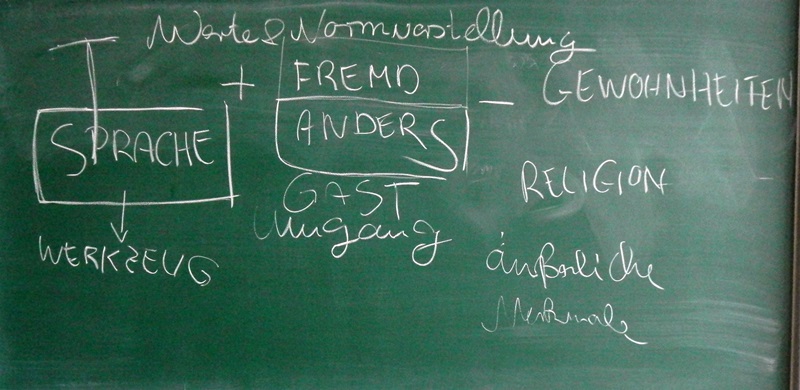 Werte & Normvorstellung
+ FREMD – GEWOHNHEITEN
SPRACHE ANDERS
GAST RELIGION
WERKZEUG Umgang äußerliche
Merkmale